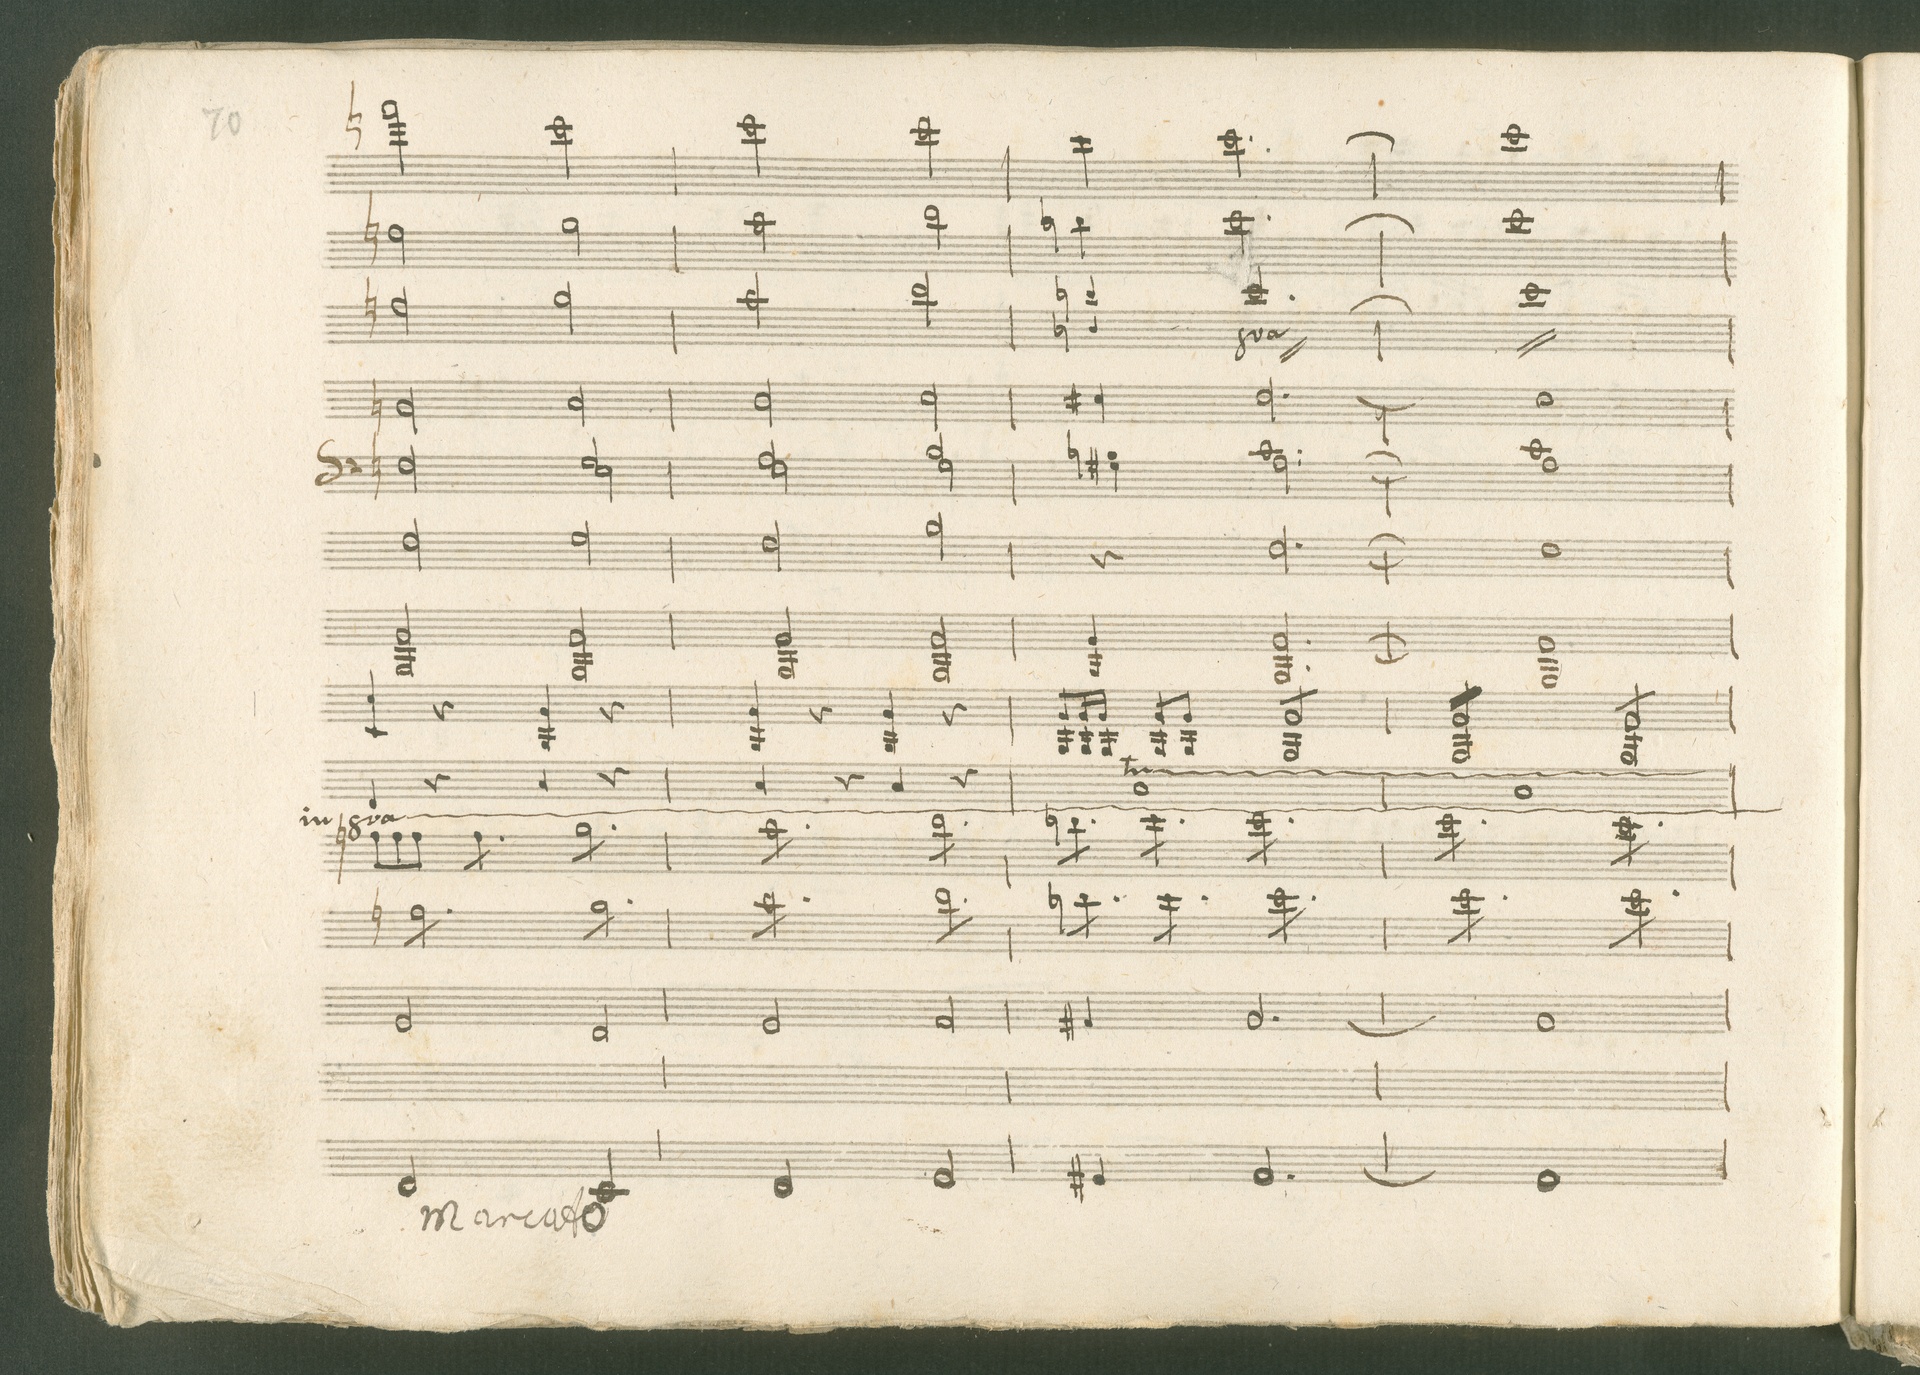 70
8va
tr
in 8va
marcato